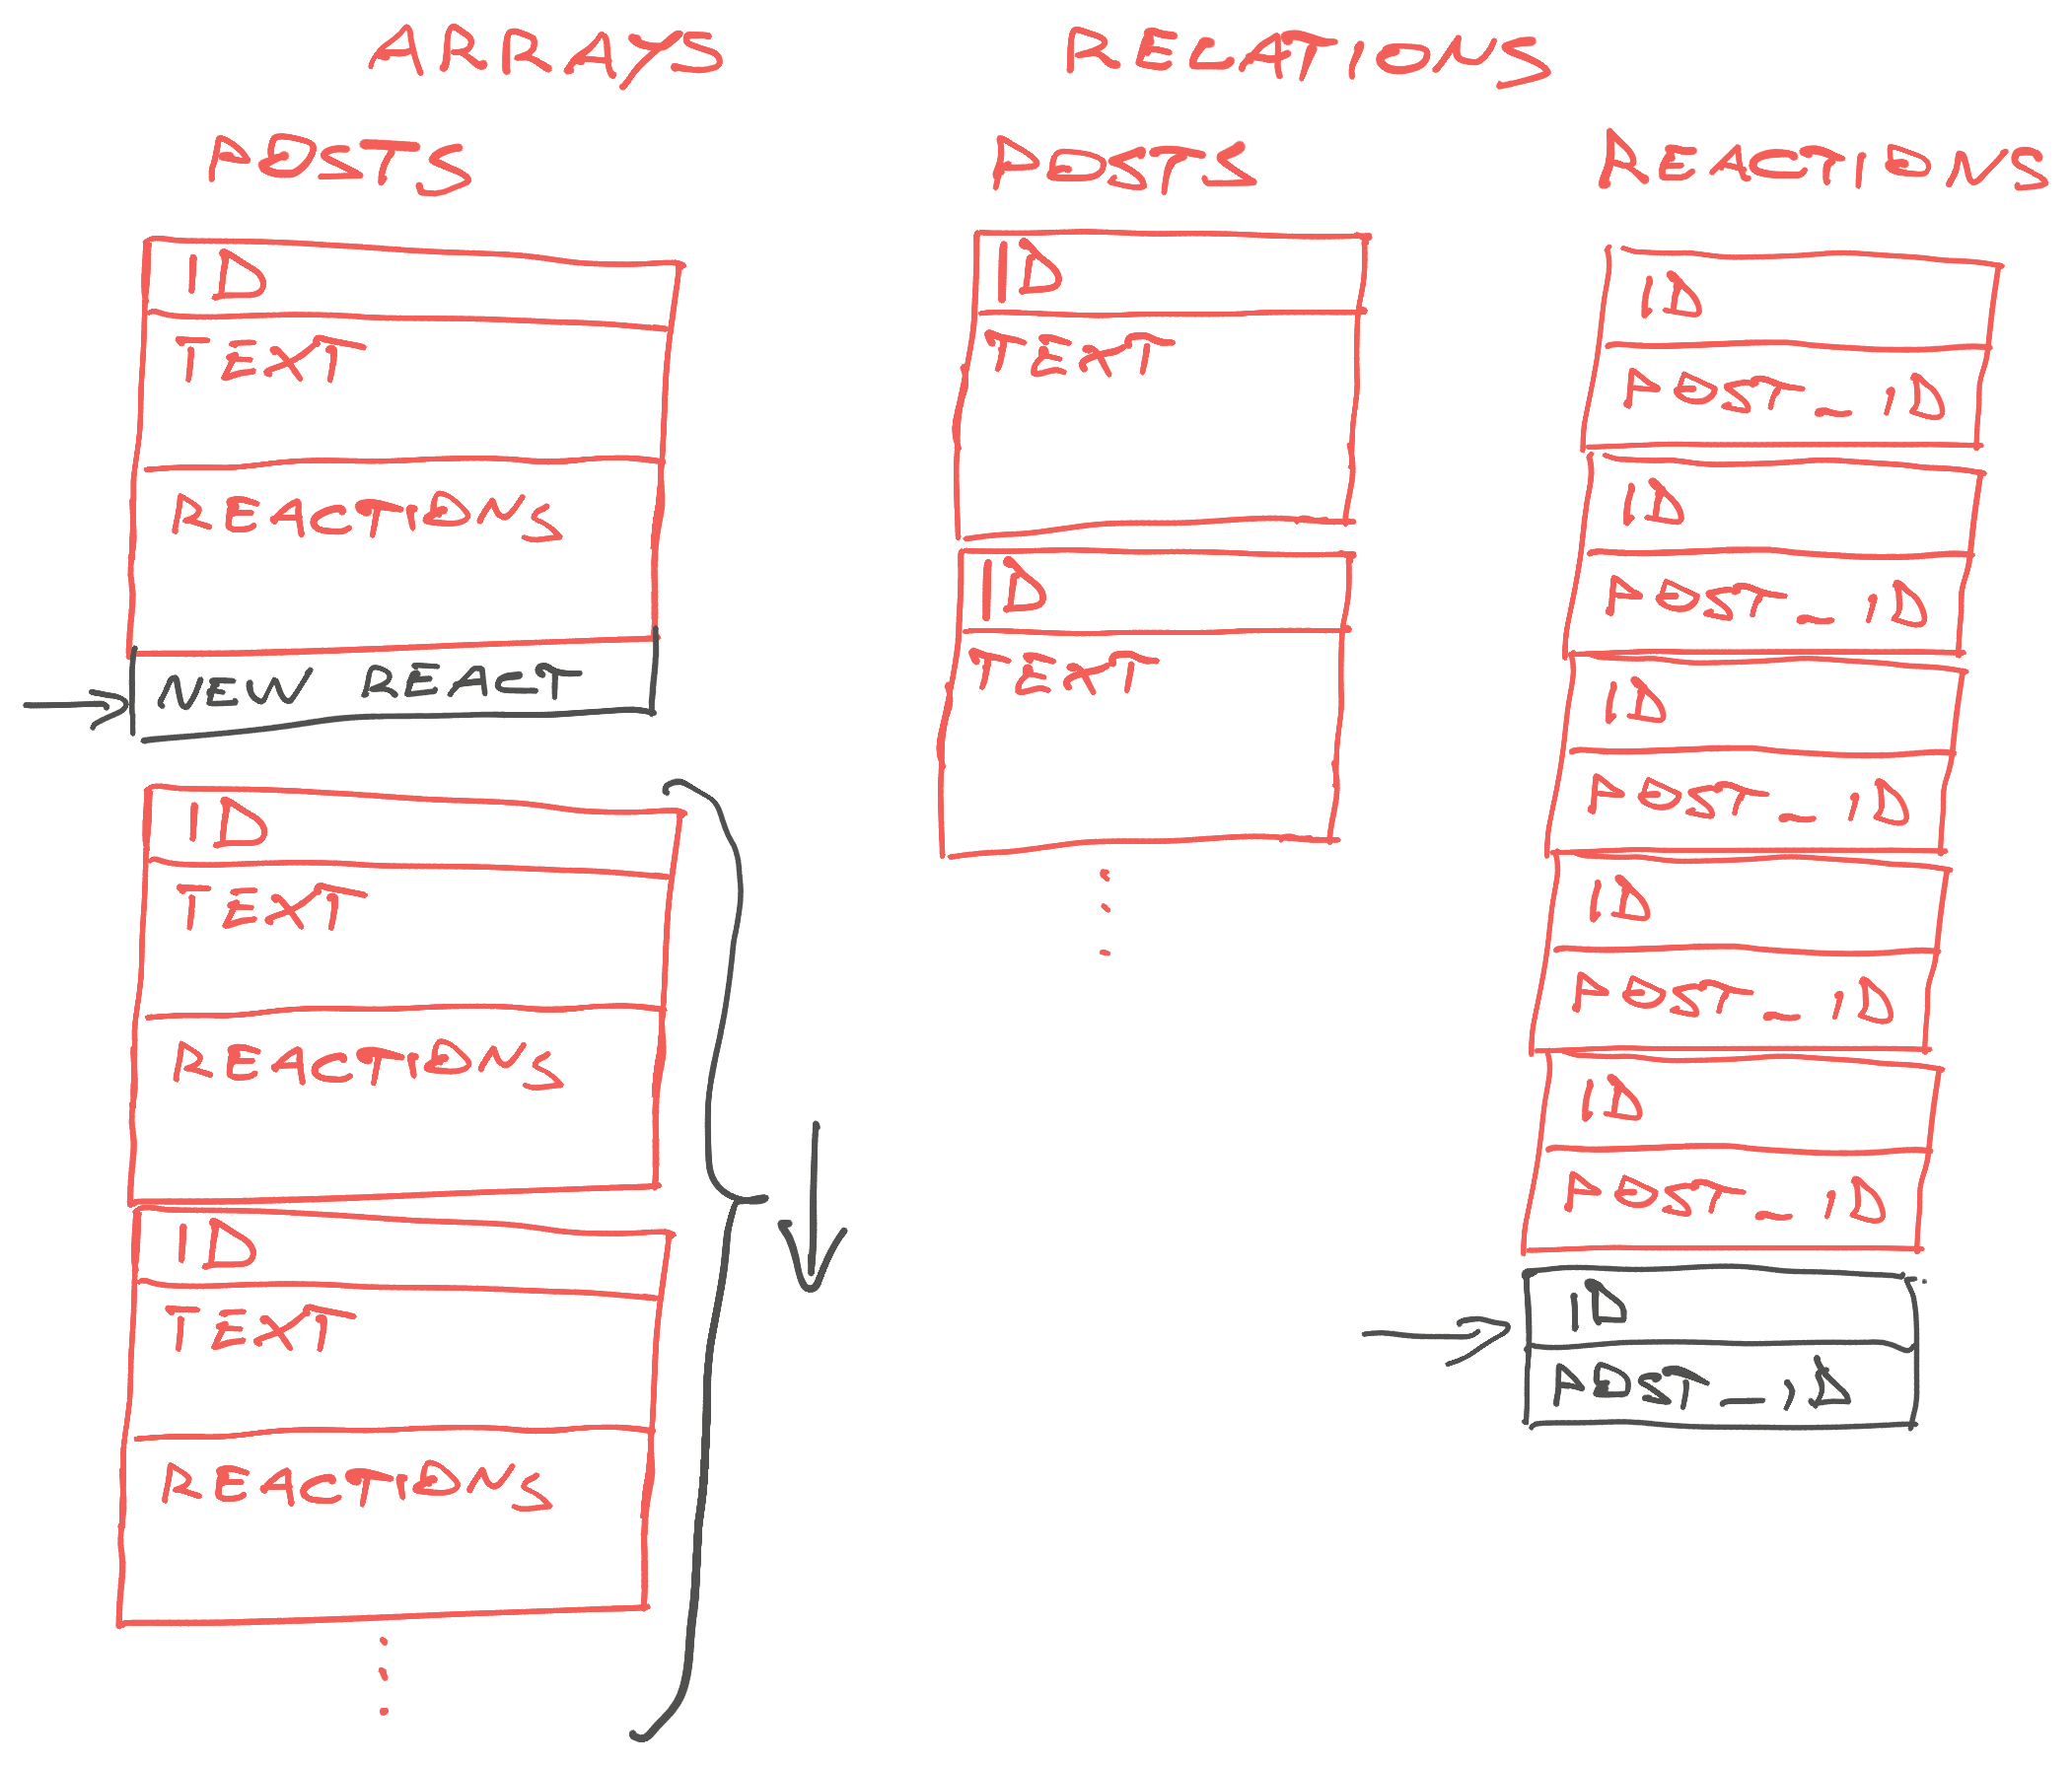 ARRAYS
POSTS
ID
TEXT
REACTIONS
NEW REACT
ID
TEXT
REACTIONS
ID
TEXT
REACTIONS
RELATIONS
POSTS
ID
TEXT
ID
TEXT
REACTIONS
ID
POST_ID
ID
POST_ID
ID
POST_ID
ID
POST_ID
ID
POST_ID
ID
POST_ID